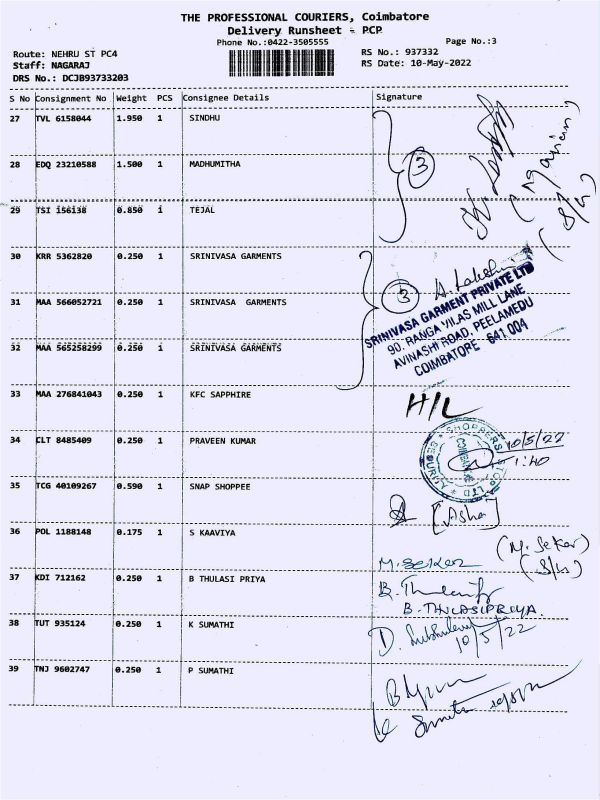 THE PROFESSIONAL COURIERS, Coimbatore
Delivery Runsheet - PCP
Phone No.:0422-3505555
Page No.:3
Route: NEHRU ST PC4
RS No.: 937332
Staff: NAGARAJ
RS Date: 10-May-2022
DRS No.: DCJB93733203
S No Consignment No Weight PCS Consignee Details Signature
27 TVL 6158044 1.950 1 SINDHU
28 EDQ 23210588 1.500 1 MADHUMITHA
3
29 TSI 156138 0.850 1 TEJAL
30 KRR 5362820 0.250 1 SRINIVASA GARMENTS
31 MAA 566052721 0.250 1 SRINIVASA GARMENTS
3
A. Lakshmi
SRINIVASA GARMENT PRIVATE LTD
90, RANGA VILAS MILL LANE
AVINASHI ROAD, PEELAMEDU
COIMBATORE - 641 004
32 MAA 565258299 0.250 1 SRINIVASA GARMENTS
33 MAA 276841043 0.250 1 KFC SAPPHIRE
H/L
34 CLT 8485409 0.250 1 PRAVEEN KUMAR
SHOPPERS STOP LTD
SECURITY
10/5/22
1:40
35 TCG 40109267 0.590 1 SNAP SHOPPEE
[Asha]
36 POL 1188148 0.175 1 S KAAVIYA
M. Seker
(M. Seker)
37 KDI 712162 0.250 1 B THULASI PRIYA
B. THULASIPRIYA
38 TUT 935124 0.250 1 K SUMATHI
10/5/22
39 TNJ 9602747 0.250 1 P SUMATHI